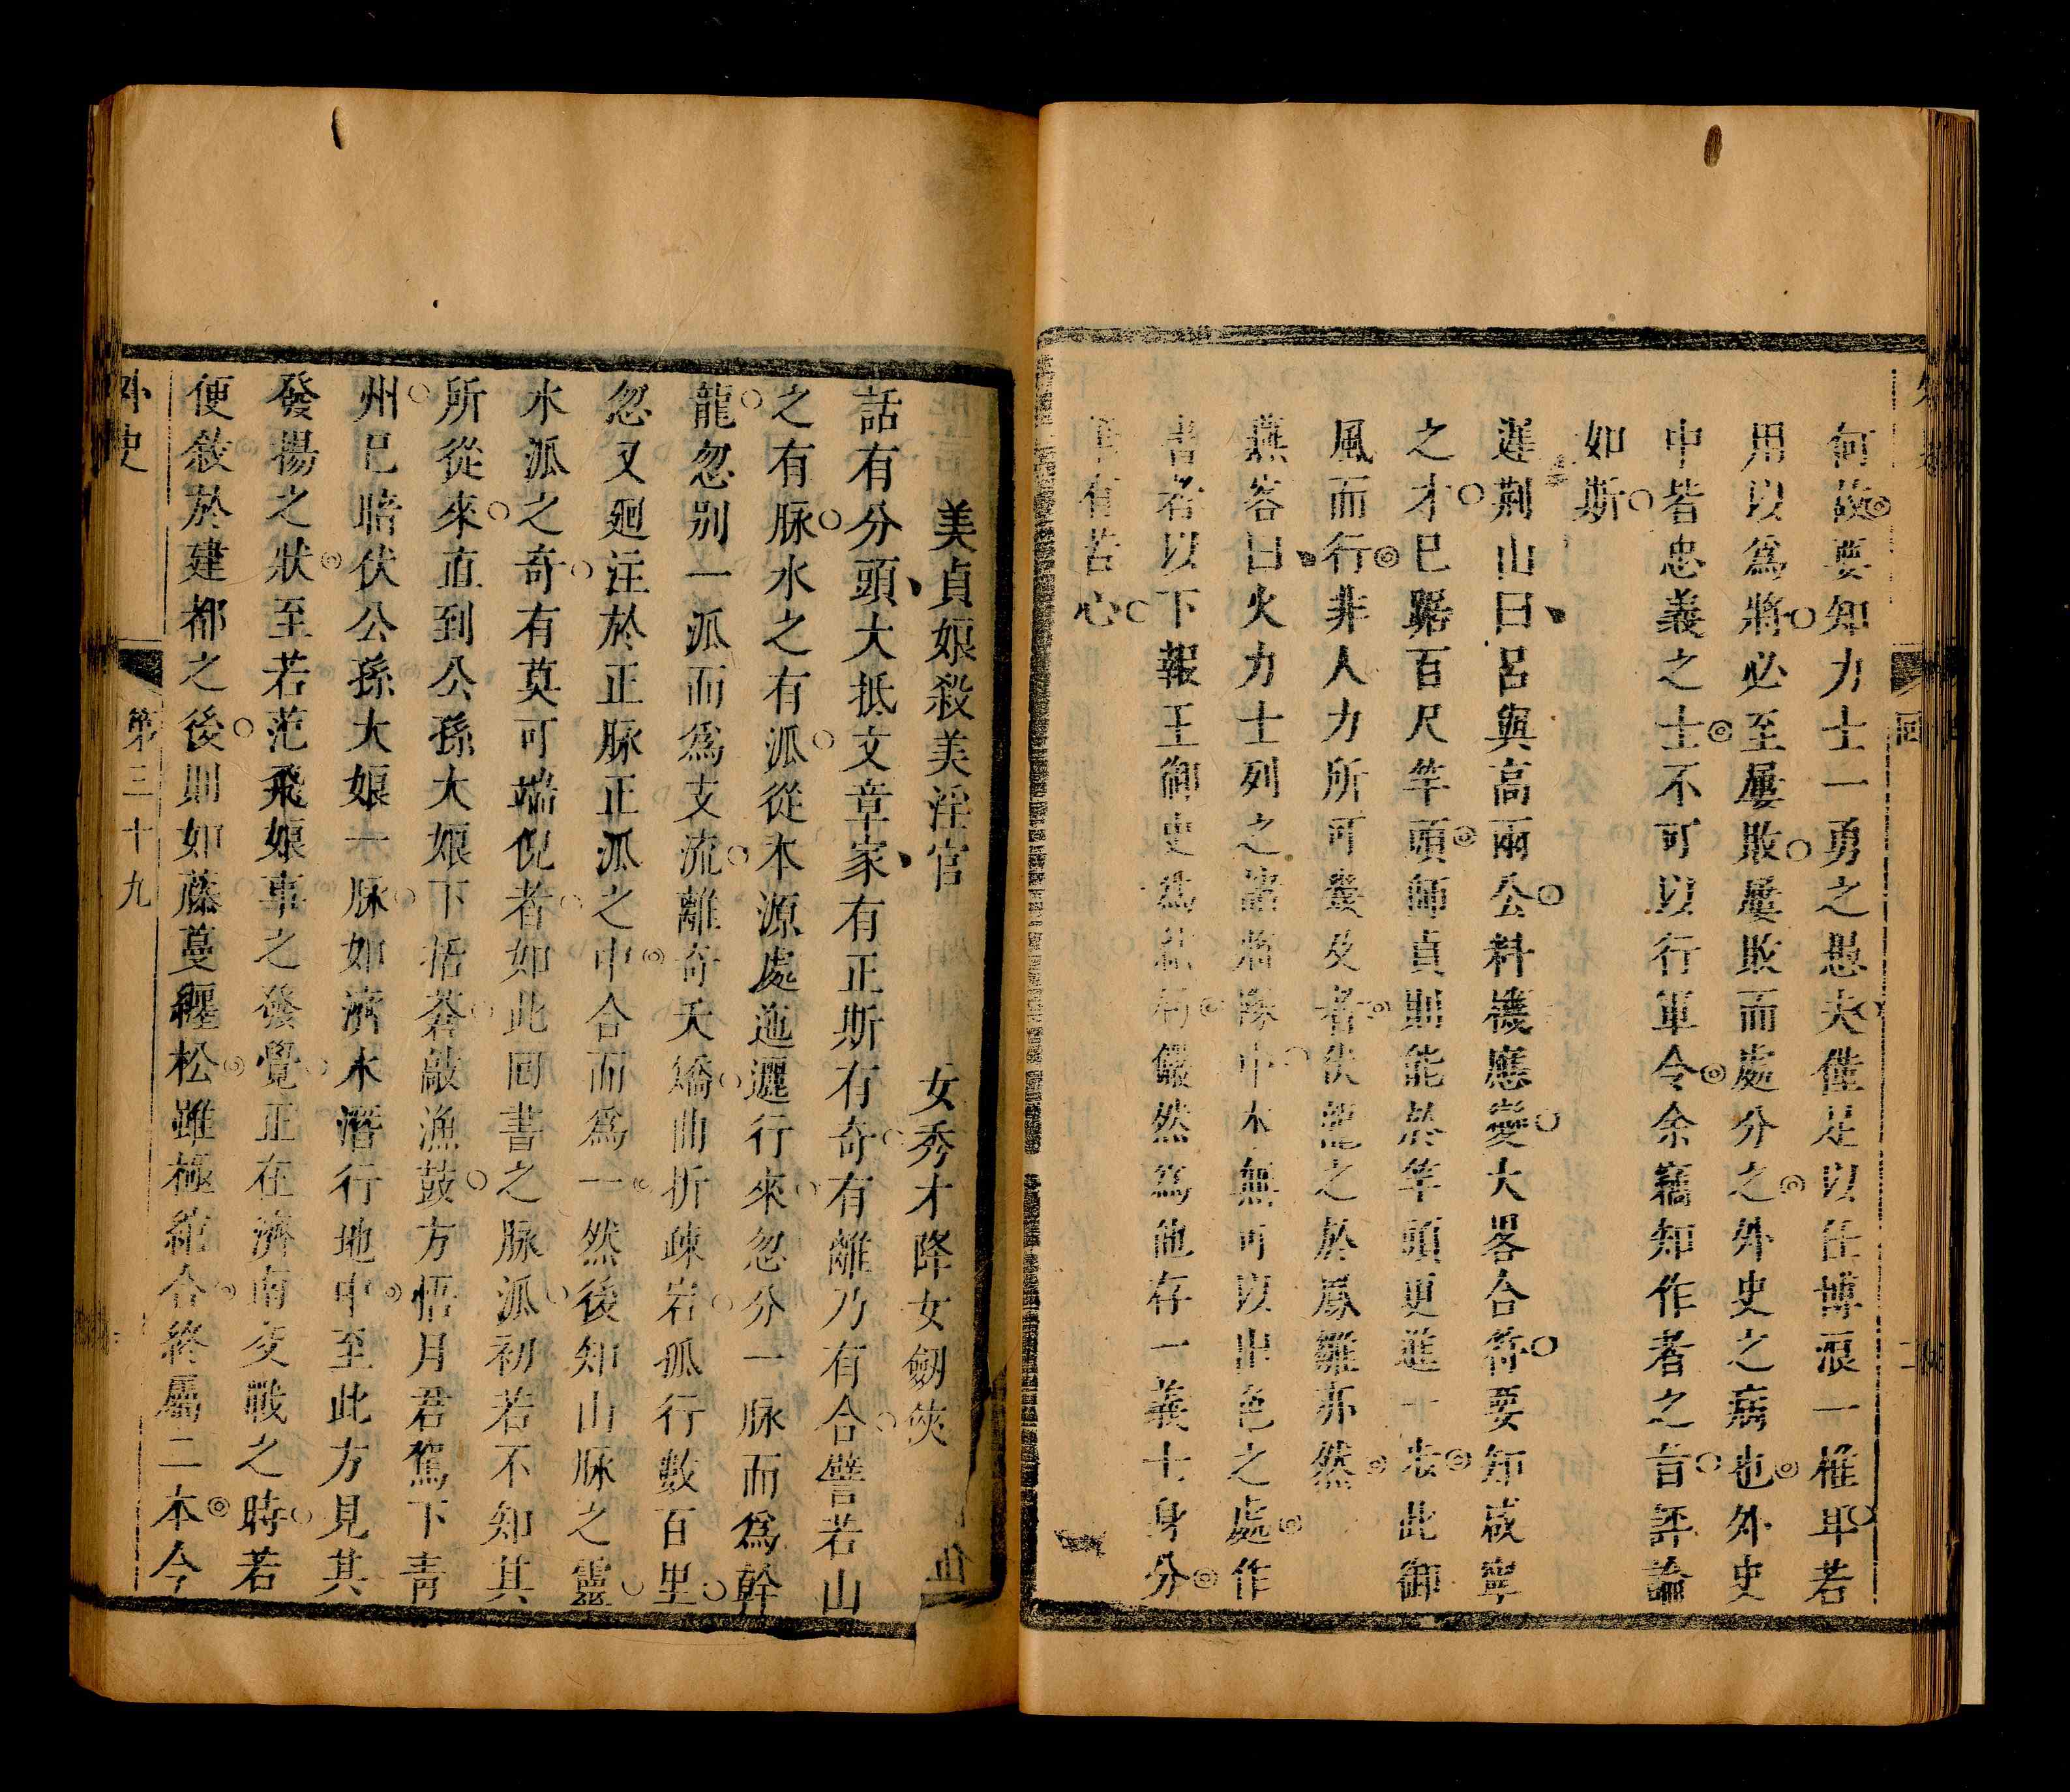 何故要知力士一勇之愚夫僅足以任博浪一椎耳若
用以為將必至屢敗屢敗而處分之外史之病也外史
中皆忠義之士不可以行軍令余竊知作者之旨評論
如斯
遲荊山曰呂與高兩公料機應變大畧合符要知咸寧
之才已躋百尺竿頭師貞則能於竿頭更進一步此御
風而行非人力所可幾及者伏龍之於鳳雛亦然
燕客曰火力士列之諸將隊中本無可以出色之處作
書者以下報王御史為結局儼然為他存一義士身分
有苦心
二
美貞娘殺美淫官 女秀才降女劒俠
話有分頭大抵文章家有正斯有奇有離乃有合譬若山
之有脉水之有派從本源處迤邐行來忽分一脉而為幹
龍忽别一派而為支流離奇夭矯曲折疎宕孤行數百里
忽又廻注於正脉正派之中合而為一然後知山脉之靈
水派之奇有莫可端倪者如此回書之脉派初若不知其
所從來直到公孫大娘下括蒼敲漁鼓方悟月君駕下青
州已暗伏公孫大娘一脉如濟水潛行地中至此方見其
發揚之狀至若范飛娘事之發覺正在濟南交戰之時若
便敘於建都之後則如藤蔓纒松雖極綰合終屬二本今
外史
第三十九